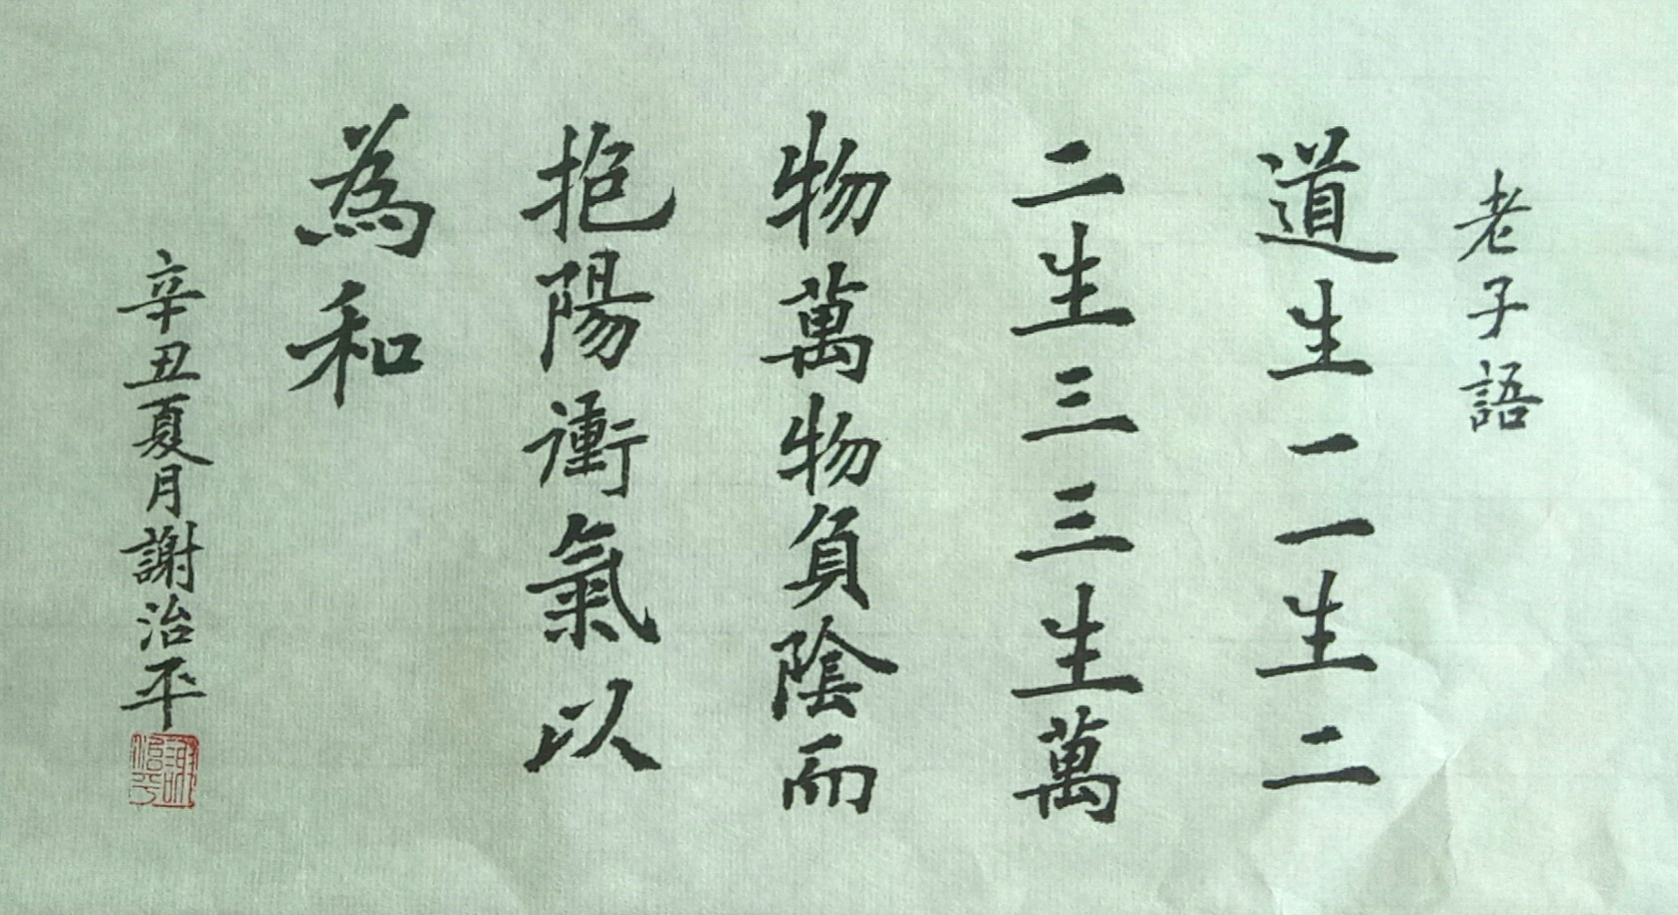 老子語
道生一一生二
二生三三生萬
物萬物負陰而
抱陽衝氣以
為和
辛丑夏月謝治平
謝治平